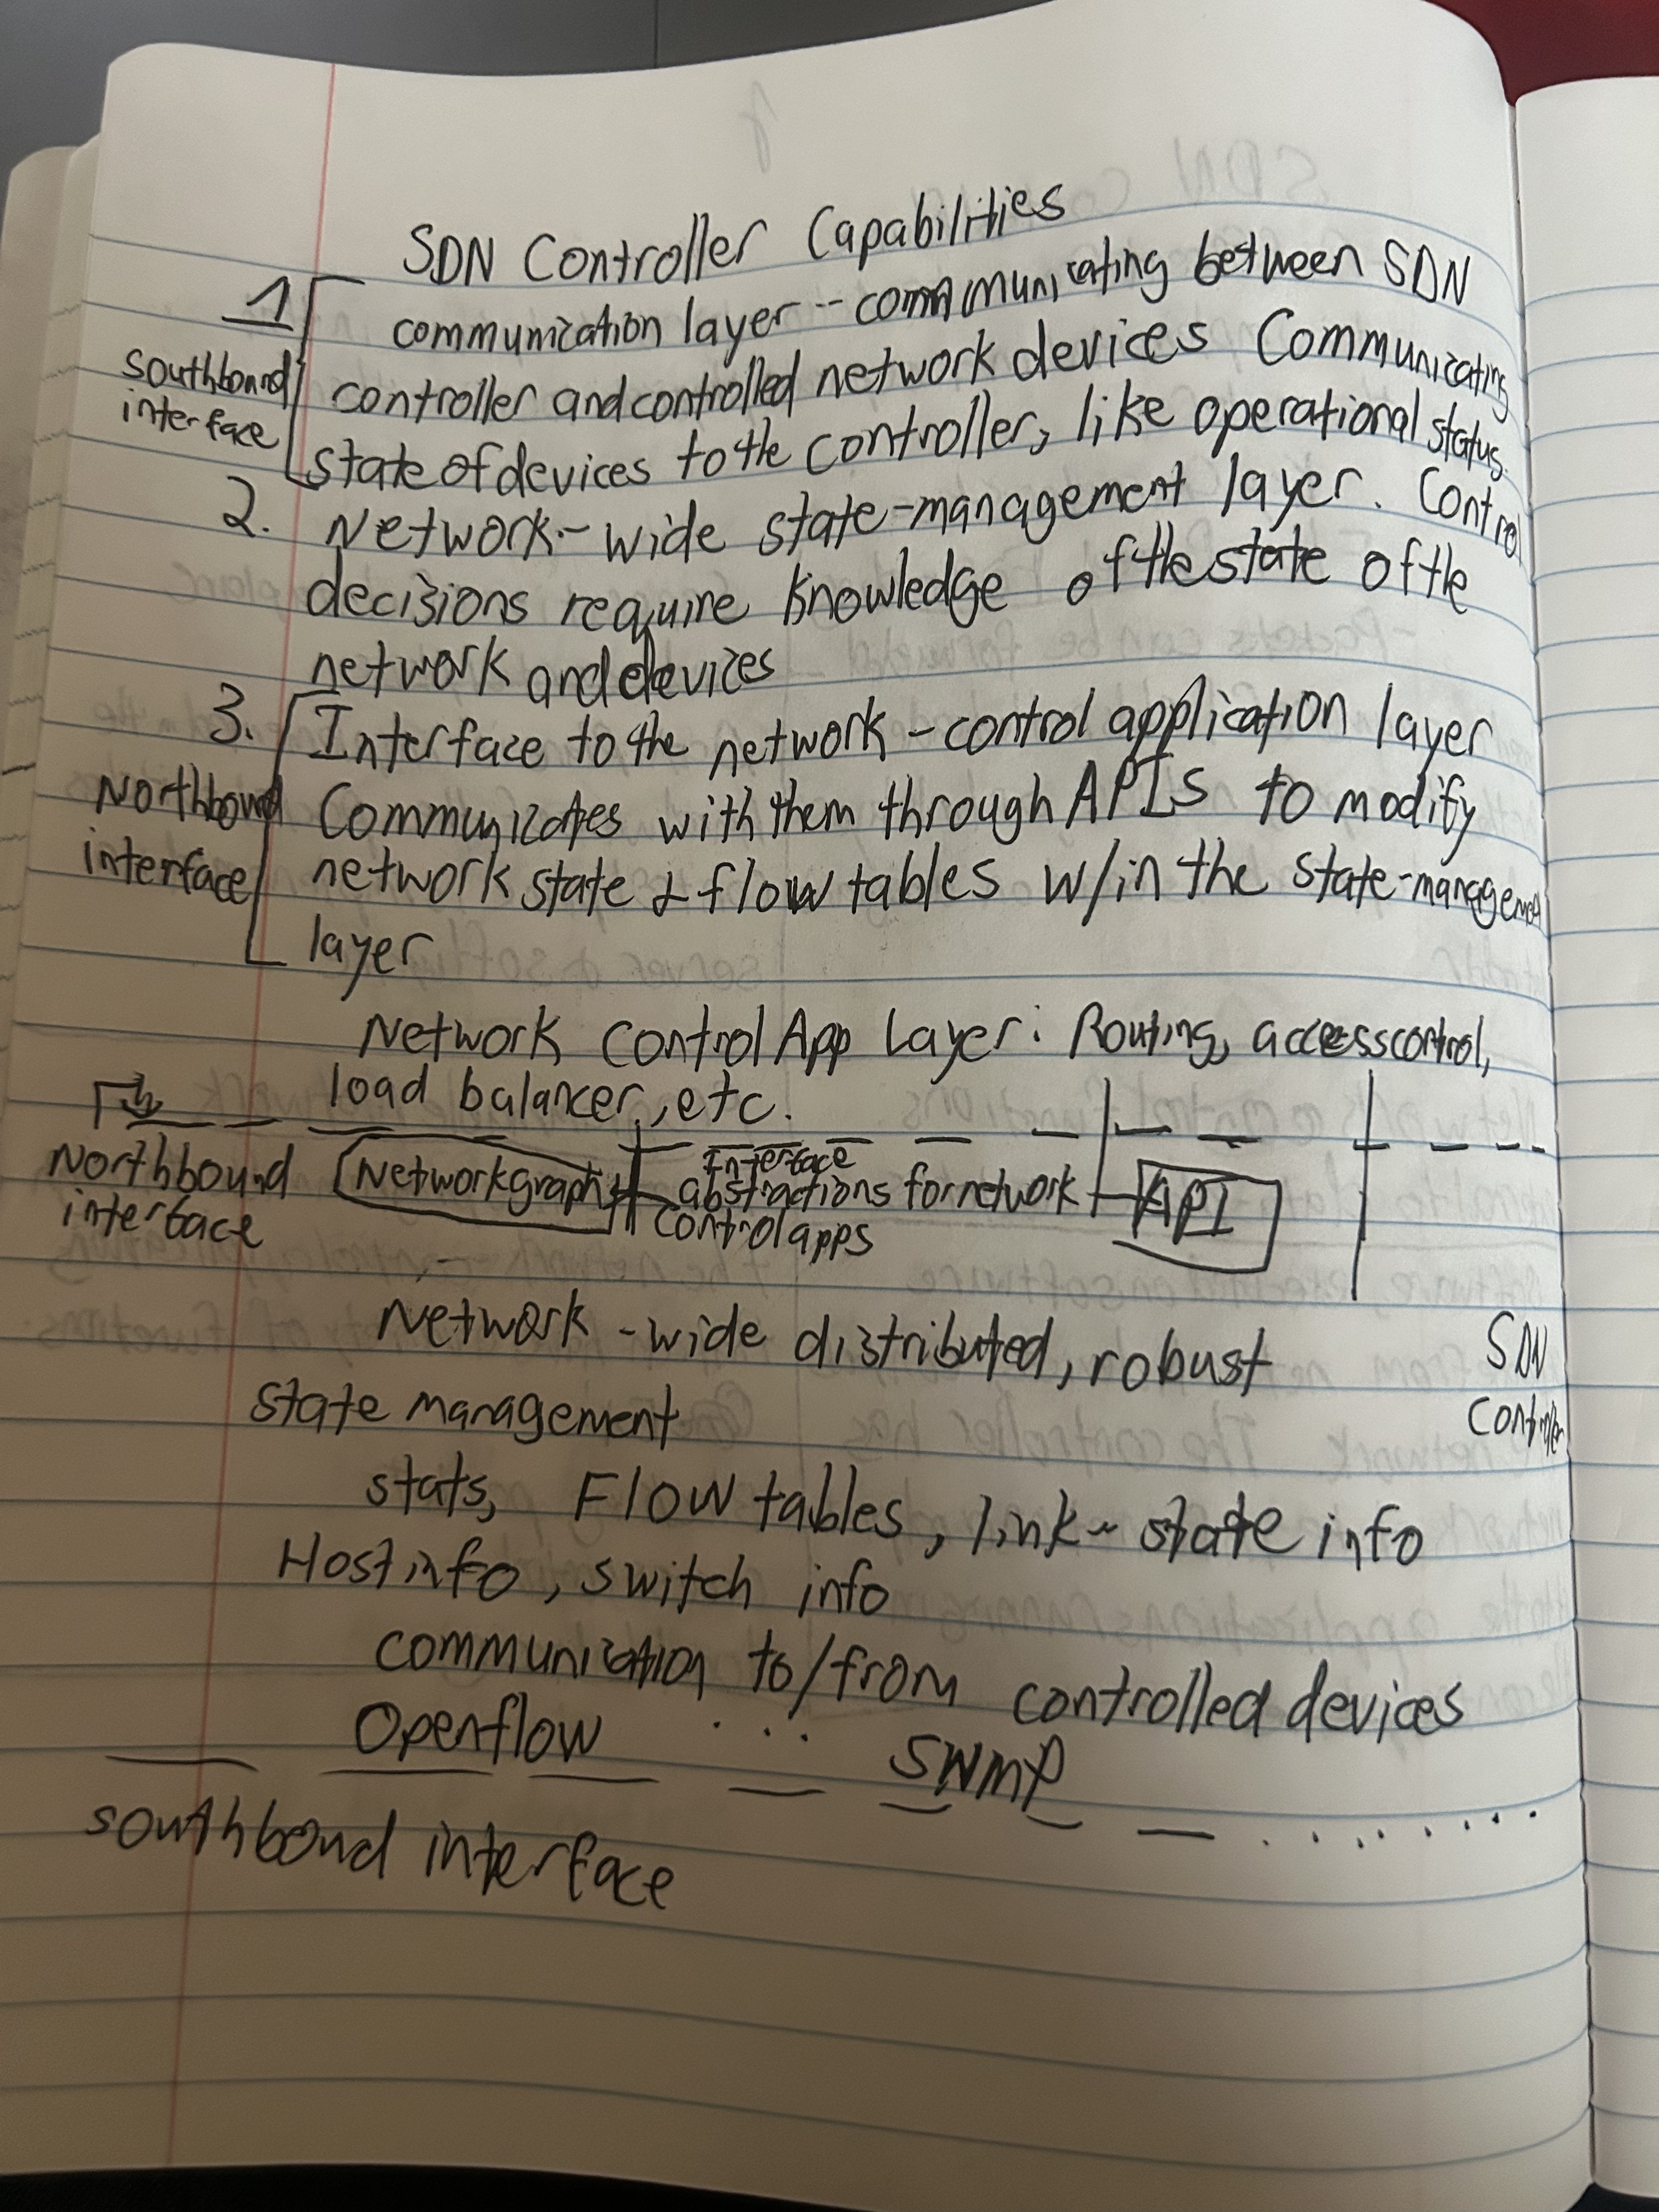 SDN Controller Capabilities
1
communication layer -- communicating between SDN
Southbound
interface
controller and controlled network devices Communicating
state of devices to the controller, like operational status.
2. Network-wide state-management layer. Control
decisions require knowledge of the state of the
network and devices
3. Interface to the network-control application layer
Northbound
interface
Communicates with them through APIs to modify
network state & flow tables w/in the state-management
layer
Network Control App Layer: Routing, access control,
load balancer, etc.
Northbound
interface
Network graph
Interface
abstractions for network
control apps
API
Network-wide distributed, robust
state management
SDN
Controller
stats, Flow tables, link-state info
Host info, switch info
communication to/from controlled devices
Openflow ... SNMP
southbound interface